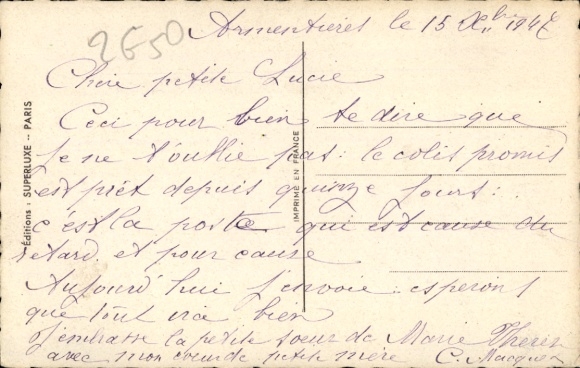 2G50
Armentières le 15 Xbre 1947
Chère petite Lucie
Ceci pour bien te dire que
je ne t'oublie pas : le colis promis
est prêt depuis quinze jours :
c'est la poste qui est cause du
retard et pour cause
Aujourd'hui j'envoie esperons
que tout ira bien
J'embrasse la petite soeur de Marie Therese
avec mon coeur de petite mère C. Macquer
Éditions : SUPERLUXE - PARIS
IMPRIMÉ EN FRANCE